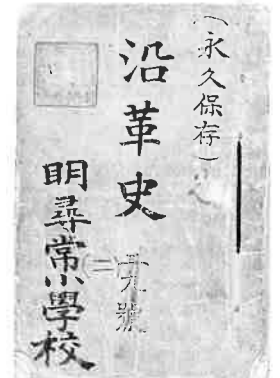 (永久保存)
沿革史
(二)
明尋常小學校